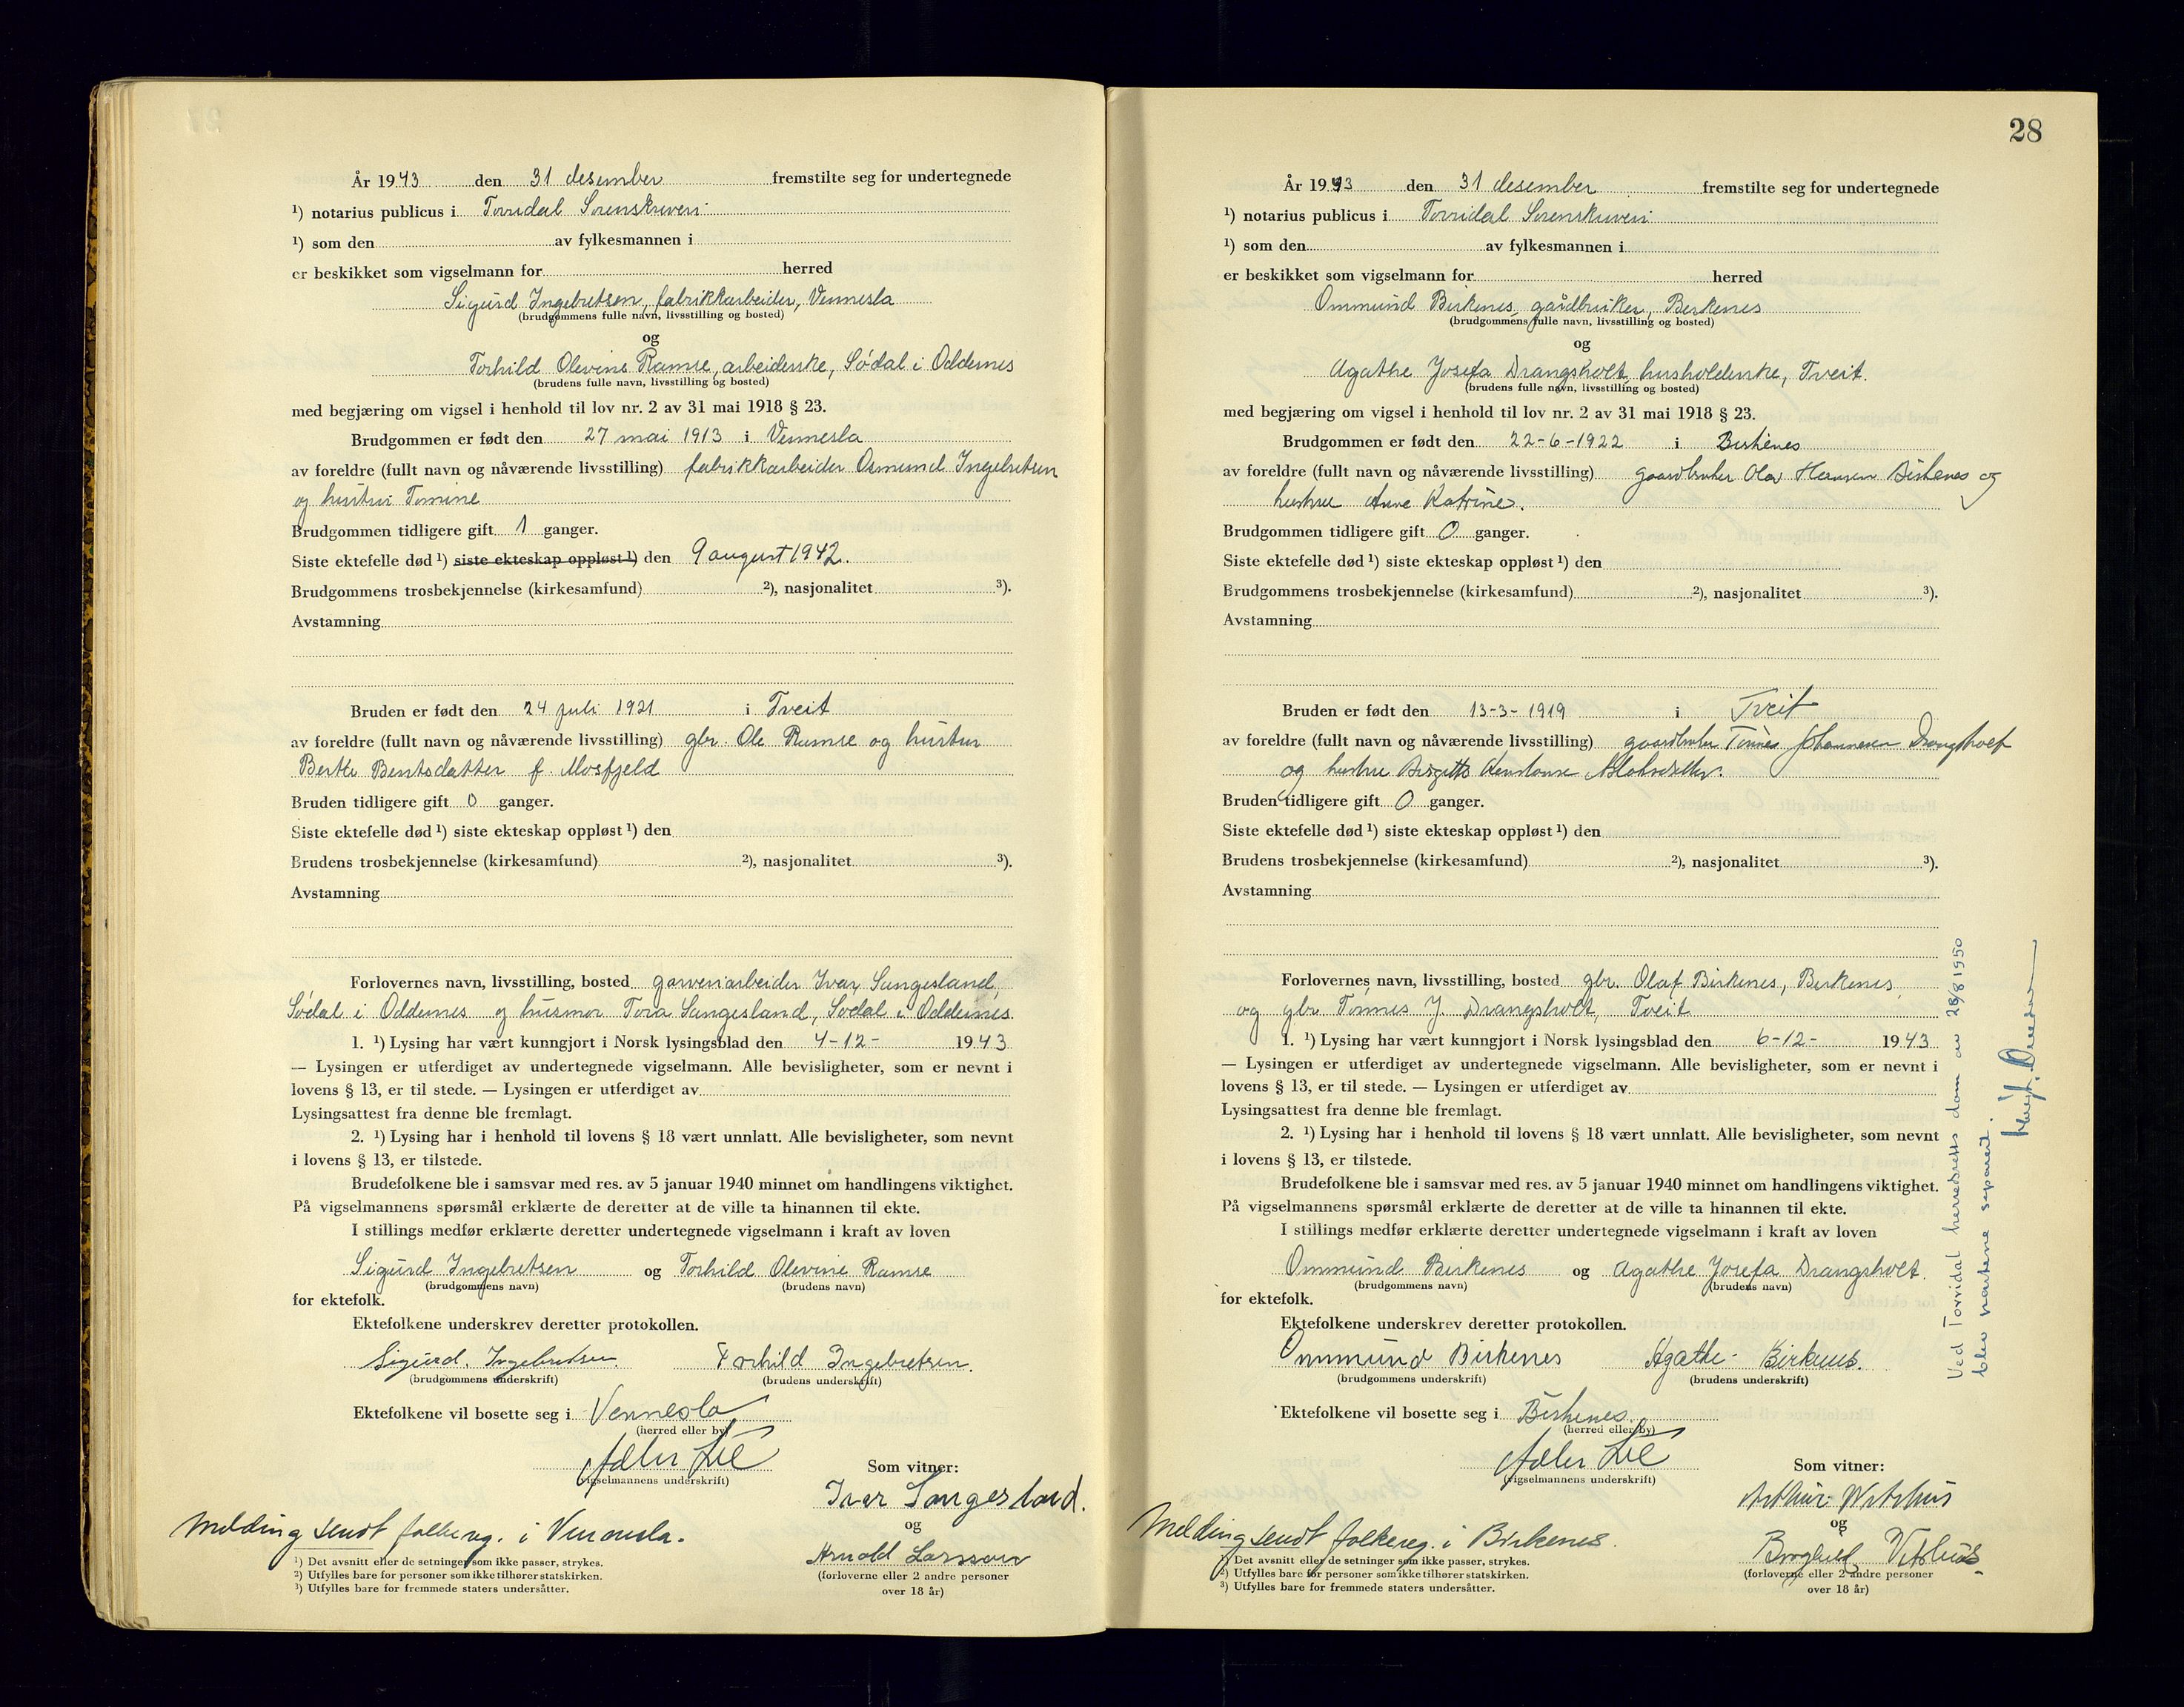 År 1943 den 31 desember fremstilte seg for undertegnede
¹) notarius publicus i Torridal Sorenskriveri
¹) som den av fylkesmannen i
er beskikket som vigselmann for herred
Sigurd Ingebretsen, fabrikkarbeider, Vennesla
(brudgommens fulle navn, livsstilling og bosted)
og
Torhild Olevine Ramse, arbeiderske, Sødal i Oddernes
(brudens fulle navn, livsstilling og bosted)
med begjæring om vigsel i henhold til lov nr. 2 av 31 mai 1918 § 23.
Brudgommen er født den 27 mai 1913 i Vennesla
av foreldre (fullt navn og nåværende livsstilling) fabrikkarbeider Osmund Ingebretsen
og hustru Tomine
Brudgommen tidligere gift 1 ganger.
Siste ektefelle død ¹) siste ekteskap oppløst ¹) den 9 august 1942.
Brudgommens trosbekjennelse (kirkesamfund) ²), nasjonalitet ³).
Avstamning
Bruden er født den 24 juli 1921 i Tveit
av foreldre (fullt navn og nåværende livsstilling) gbr. Ole Ramse og hustru
Berthe Bentsdatter f. Mosfjeld
Bruden tidligere gift 0 ganger.
Siste ektefelle død ¹) siste ekteskap oppløst ¹) den
Brudens trosbekjennelse (kirkesamfund) ²), nasjonalitet ³).
Avstamning
Forlovernes navn, livsstilling, bosted garveriarbeider Ivar Sangesland,
Sødal i Oddernes og husmor Tora Sangesland, Sødal i Oddernes.
1. ¹) Lysing har vært kunngjort i Norsk lysingsblad den 4-12- 1943
— Lysingen er utferdiget av undertegnede vigselmann. Alle bevisligheter, som er nevnt i
lovens § 13, er til stede. — Lysingen er utferdiget av
Lysingsattest fra denne ble fremlagt.
2. ¹) Lysing har i henhold til lovens § 18 vært unnlatt. Alle bevisligheter, som nevnt
i lovens § 13, er tilstede.
Brudefolkene ble i samsvar med res. av 5 januar 1940 minnet om handlingens viktighet.
På vigselmannens spørsmål erklærte de deretter at de ville ta hinannen til ekte.
I stillings medfør erklærte deretter undertegnede vigselmann i kraft av loven
Sigurd Ingebretsen og Torhild Olevine Ramse
(brudgommens navn) (brudens navn)
for ektefolk.
Ektefolkene underskrev deretter protokollen.
Sigurd. Ingebretsen. Torhild Ingebretsen.
(brudgommens underskrift) (brudens underskrift)
Ektefolkene vil bosette seg i Vennesla
(herred eller by)
Adler Lie
(vigselmannens underskrift)
Som vitner:
Ivar Sangesland.
og
Arnold Larsson
(forloverne eller 2 andre personer
over 18 år)
Melding sendt folkereg. i Vennesla.
¹) Det avsnitt eller de setninger som ikke passer, strykes.
²) Utfylles bare for personer som ikke tilhører statskirken.
³) Utfylles bare for fremmede staters undersåtter.
28
År 1943 den 31 desember fremstilte seg for undertegnede
¹) notarius publicus i Torridal Sorenskriveri
¹) som den av fylkesmannen i
er beskikket som vigselmann for herred
Ommund Birkenes, gårdbruker, Birkenes
(brudgommens fulle navn, livsstilling og bosted)
og
Agathe Josefa Drangsholt, husholderske, Tveit.
(brudens fulle navn, livsstilling og bosted)
med begjæring om vigsel i henhold til lov nr. 2 av 31 mai 1918 § 23.
Brudgommen er født den 22-6-1922 i Birkenes
av foreldre (fullt navn og nåværende livsstilling) gaardbruker Olav Hansen Birkenes og
hustru Anne Katrine.
Brudgommen tidligere gift 0 ganger.
Siste ektefelle død ¹) siste ekteskap oppløst ¹) den
Brudgommens trosbekjennelse (kirkesamfund) ²), nasjonalitet ³).
Avstamning
Bruden er født den 13-3-1919 i Tveit
av foreldre (fullt navn og nåværende livsstilling) gaardbruker Tønnes Johannesen Drangsholt
og hustru Birgitte
Bruden tidligere gift 0 ganger.
Siste ektefelle død ¹) siste ekteskap oppløst ¹) den
Brudens trosbekjennelse (kirkesamfund) ²), nasjonalitet ³).
Avstamning
Forlovernes navn, livsstilling, bosted gbr. Olaf Birkenes, Birkenes,
og gbr Tønnes J. Drangsholt, Tveit
1. ¹) Lysing har vært kunngjort i Norsk lysingsblad den 6-12- 1943
— Lysingen er utferdiget av undertegnede vigselmann. Alle bevisligheter, som er nevnt i
lovens § 13, er til stede. — Lysingen er utferdiget av
Lysingsattest fra denne ble fremlagt.
2. ¹) Lysing har i henhold til lovens § 18 vært unnlatt. Alle bevisligheter, som nevnt
i lovens § 13, er tilstede.
Brudefolkene ble i samsvar med res. av 5 januar 1940 minnet om handlingens viktighet.
På vigselmannens spørsmål erklærte de deretter at de ville ta hinannen til ekte.
I stillings medfør erklærte deretter undertegnede vigselmann i kraft av loven
Ommund Birkenes og Agathe Josefa Drangsholt.
(brudgommens navn) (brudens navn)
for ektefolk.
Ektefolkene underskrev deretter protokollen.
Ommund Birkenes Agathe Birkenes.
(brudgommens underskrift) (brudens underskrift)
Ektefolkene vil bosette seg i Birkenes.
(herred eller by)
Adler Lie
(vigselmannens underskrift)
Som vitner:
Arthur Vitshus
og
Borghild Vitshus
(forloverne eller 2 andre personer
over 18 år)
Melding sendt folkereg. i Birkenes.
¹) Det avsnitt eller de setninger som ikke passer, strykes.
²) Utfylles bare for personer som ikke tilhører statskirken.
³) Utfylles bare for fremmede staters undersåtter.
Ved Torridal herredsretts dom av 28/8 1950
blev partene separert.